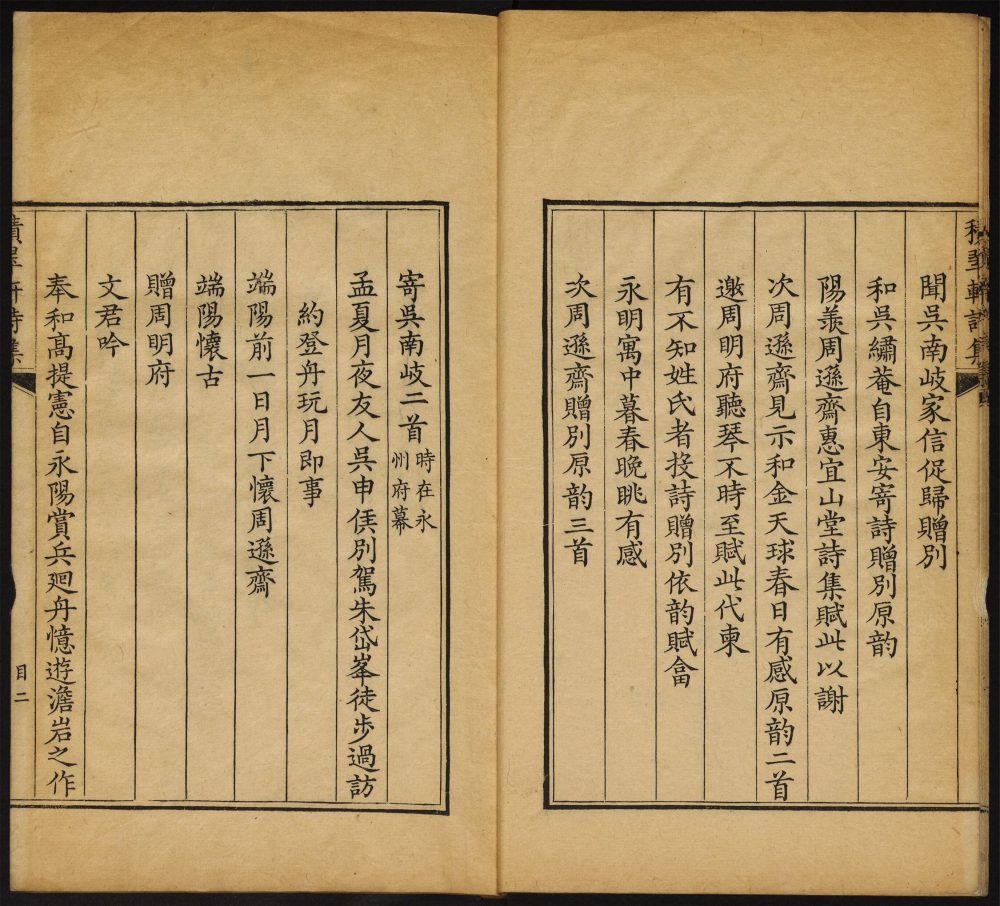 聞吳南岐家信促歸贈別
和吳繡菴自東安寄詩贈別原韵
陽羨周遜齋惠宜山堂詩集賦此以謝
次周遜齋見示和金天球春日有感原韵二首
邀周明府聽琴不時至賦此代柬
有不知姓氏者投詩贈別依韵賦畣
永明寓中暮春晚眺有感
次周遜齋贈別原韵三首
寄吳南岐二首 時在永州府幕
孟夏月夜友人吳申侯別駕朱岱峯徒步過訪
約登舟玩月即事
端陽前一日月下懷周遜齋
端陽懷古
贈周明府
文君吟
奉和高提憲自永陽賞兵廻舟憶遊澹岩之作
目二